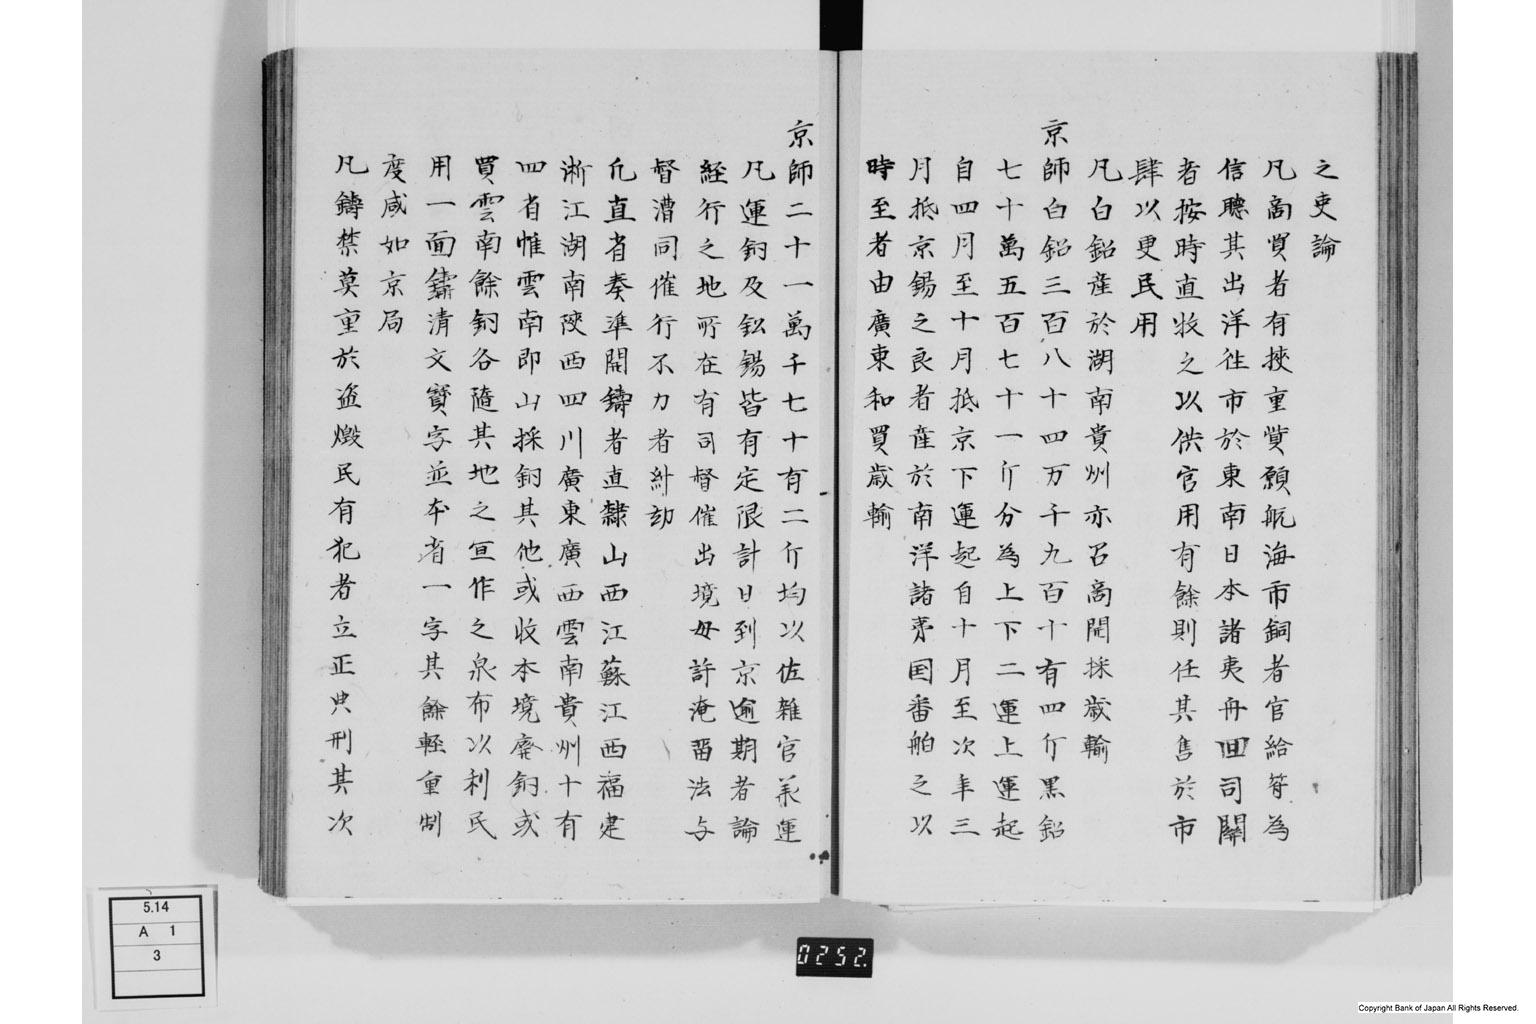 之吏論
凡商賈者有挾重貲願航海市銅者官給符為
信聽其出洋徃市於東南日本諸夷舟回司關
者按時直收之以供官用有餘則任其售於市
肆以更民用
凡白鉛產於湖南貴州亦召商開採歲輸
京師白鉛三百八十四万千九百十有四斤黑鉛
七十萬五百七十一斤分為上下二運上運起
自四月至十月抵京下運起自十月至次年三
月抵京錫之良者產於南洋諸夷国番舶之以
時至者由廣東和買歲輸
京師二十一萬千七十有二斤均以佐雜官羕運
凡運銅及鉛錫皆有定限計日到京逾期者論
経行之地所在有司督催出境毋許淹畱法与
督漕同催行不力者糾劾
凡直省奏準開鑄者直隸山西江蘇江西福建
淅江湖南陝西四川廣東廣西雲南貴州十有
四省惟雲南即山採銅其他或收本境廢銅或
買雲南餘銅各隨其地之宜作之泉布以利民
用一面鑄清文寶字並本省一字其餘輕重制
度咸如京局
凡鑄禁莫重於盜燬民有犯者立正典刑其次
5.14
A 1
3
0252
Copyright Bank of Japan All Rights Reserved.